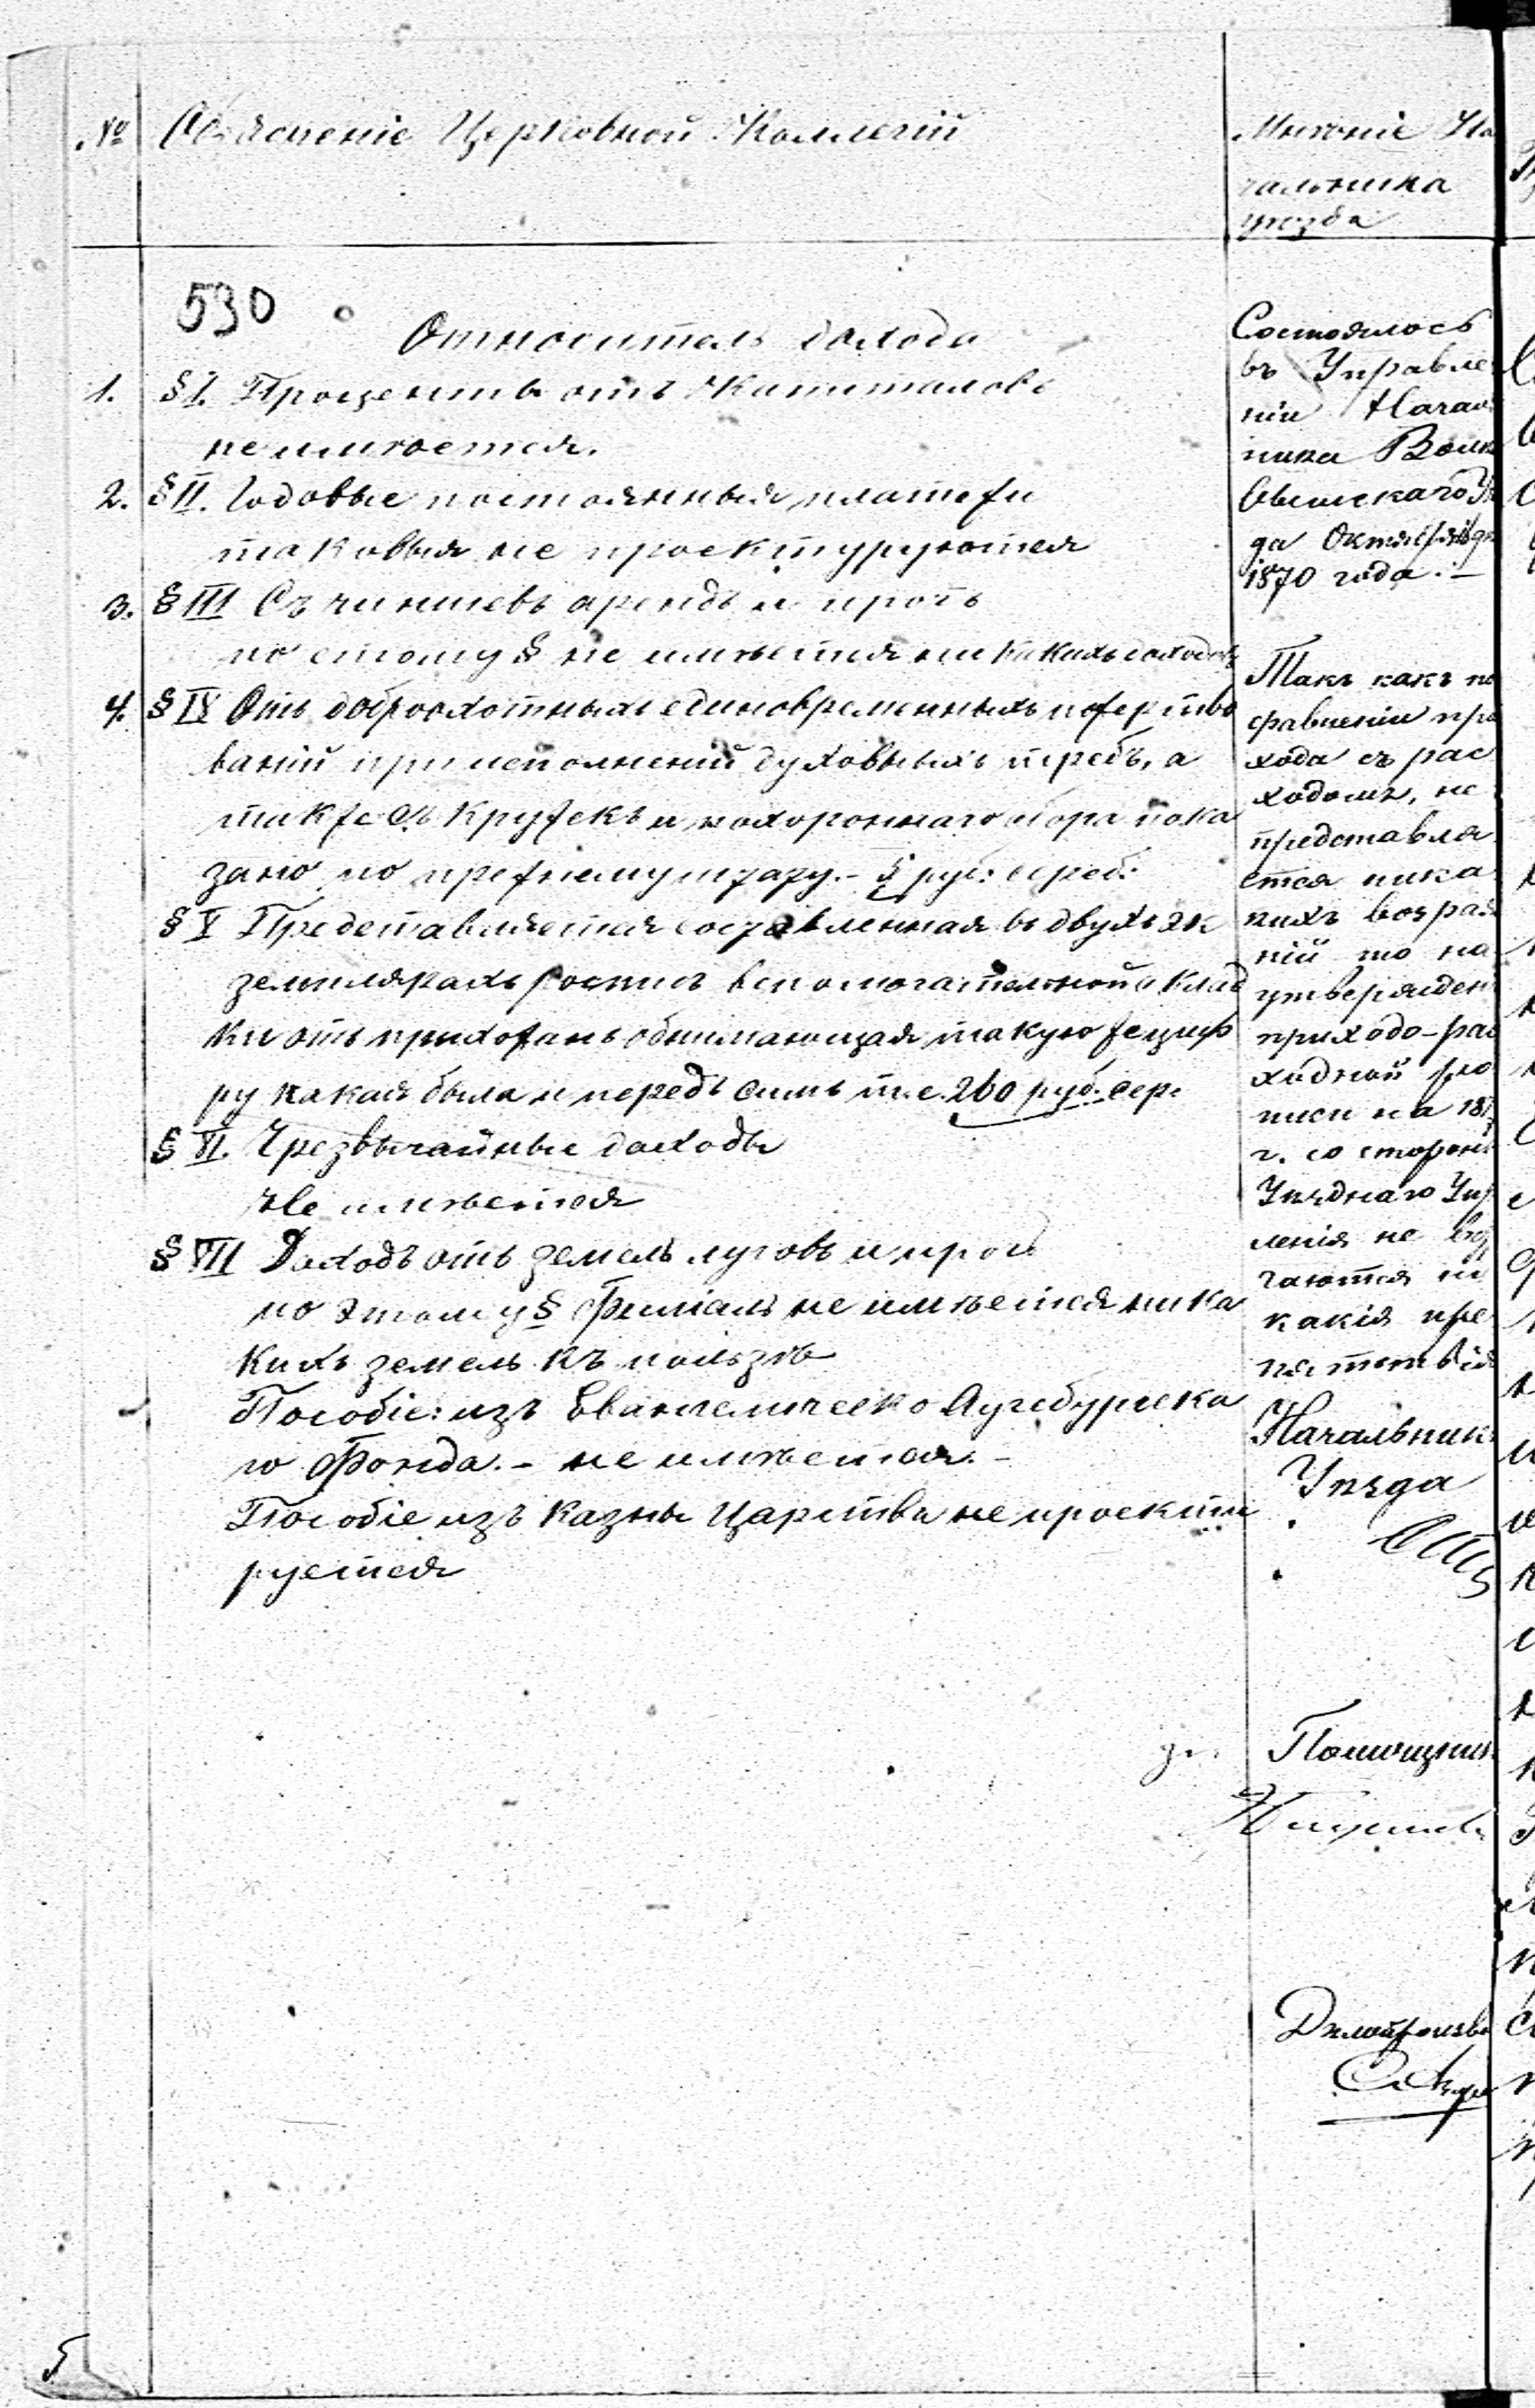 № Объясненіе Церковной Коллегій
530
Относитель дохода
1. § I. Проценты отъ Капиталовъ
не имѣется.
2. § II. Годовые постоянныя платежи
таковыя не проектуруются
3. § III Съ чиншевъ арендъ и проть
по етому § не имѣется ни какихъ доходовъ
4. § IV Отъ доброохотныхъ единовременныхъ пожертво
ваній при исполненій духовныхъ требъ, а
также съ Кружекъ и похороннаго сбора пока
зано по прежнему руб: сереб:
§ V Представляется составленная въ двухъ эк
земплярахъ роспись вспомогательной склад
ки отъ прихожанъ обнимающая такую же циф
ру какая была и передъ симъ т.е. 260 руб. сер.
§ VI. Чрезвычайные доходы
Не имѣется
§ VII Доходъ отъ земель луговъ и проч
по этому § Филіалъ не имѣется ника
кихъ земель къ пользѣ
Пособіе: изъ Евангелическо Аугсбургска
го Фонда. – не имѣется. –
Пособіе изъ Казны Царства не проекти
руется
Мнѣніе На
чальника
уѣзда
Состоялось
въ Управле
ніи Началь
ника Волко
вышскаго Уѣ
да Октября дня
1870 года. –
Такъ какъ по
сравненіи при
хода съ рас
ходомъ, не
представля
ется ника
кихъ возраж
ній то на
утвержден
приходо-рас
ходной рос
писи на 187
г. со стороны
Уѣзднаго Упр
ленія не встр
чаются ни
какія пре
пятствія
Начальникъ
Уѣзда
Помощник
Дѣлопроизво
5